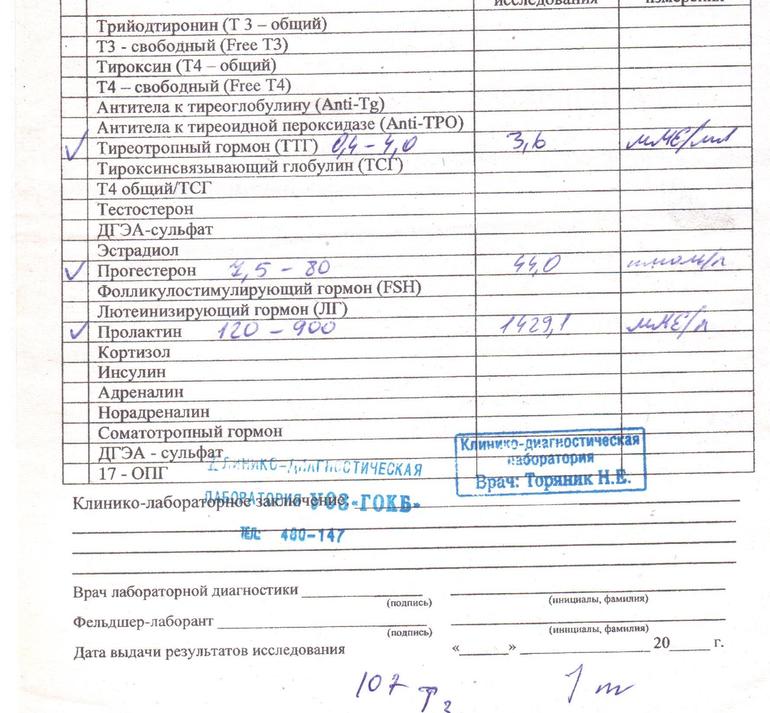 исследования измерения
Трийодтиронин (Т 3 – общий)
Т3 - свободный (Free T3)
Тироксин (Т4 – общий)
Т4 – свободный (Free T4)
Антитела к тиреоглобулину (Anti-Tg)
Антитела к тиреоидной пероксидазе (Anti-TPO)
Тиреотропный гормон (ТТГ) 0,4 – 4,0 3,6 мМЕ/мл
Тироксинсвязывающий глобулин (ТСГ)
Т4 общий/ТСГ
Тестостерон
ДГЭА-сульфат
Эстрадиол
Прогестерон 7,5 – 80 44,0 нмоль/л
Фолликулостимулирующий гормон (FSH)
Лютеинизирующий гормон (ЛГ)
Пролактин 120 – 900 1429,1 мМЕ/л
Кортизол
Инсулин
Адреналин
Норадреналин
Соматотропный гормон
ДГЭА - сульфат
17 - ОПГ
Клинико-диагностическая
лаборатория
Врач: Торяник Н.Е.
КЛИНИКО-ДИАГНОСТИЧЕСКАЯ
ЛАБОРАТОРИЯ УОЗ «ГОКБ»
ТЕЛ: 480-147
Клинико-лабораторное заключение:
Врач лабораторной диагностики
(подпись) (инициалы, фамилия)
Фельдшер-лаборант
(подпись) (инициалы, фамилия)
Дата выдачи результатов исследования «_____» 20____ г.
107